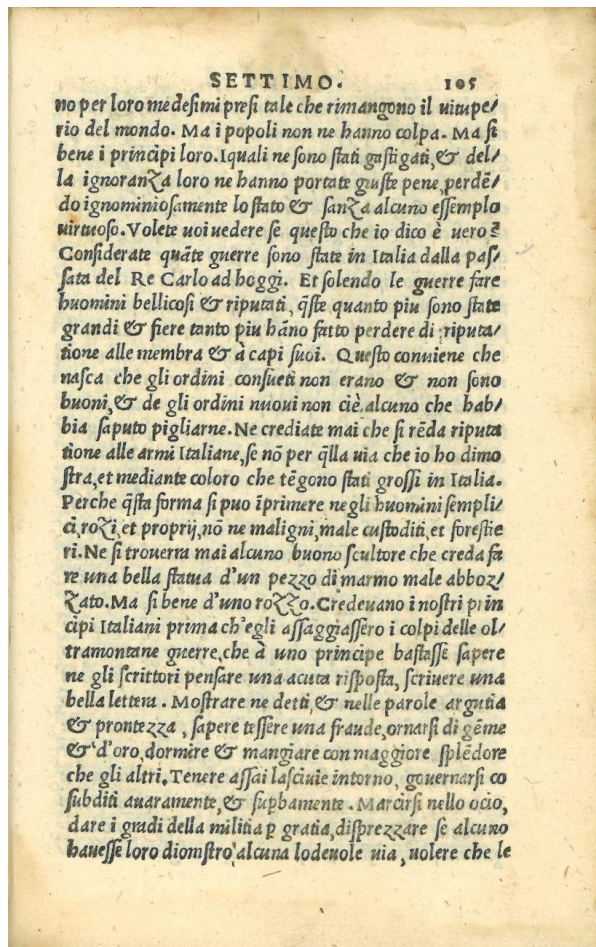 SETTIMO. 105
no per loro medesimi presi tale che rimangono il uitupe/
rio del mondo. Ma i popoli non ne hanno colpa. Ma si
bene i principi loro. Iquali ne sono stati gastigati, & del/
la ignoranza loro ne hanno portate giuste pene, perdē/
do ignominiosamente lo stato & sanza alcuno essemplo
uirtuoso. Volete uoi uedere se questo che io dico è uero?
Considerate quāte guerre sono state in Italia dalla pas/
sata del Re Carlo ad hoggi. Et solendo le guerre fare
huomini bellicosi & riputati, q̄ste quanto piu sono state
grandi & fiere tanto piu hāno fatto perdere di riputa/
tione alle membra & à capi suoi. Questo conuiene che
nasca che gli ordini consueti non erano & non sono
buoni, & de gli ordini nuoui non ciè alcuno che hab/
bia saputo pigliarne. Ne crediate mai che si rēda riputa
tione alle armi Italiane, se nō per q̄lla uia che io ho dimo
stra, et mediante coloro che tēgono stati grossi in Italia.
Perche q̄sta forma si puo īprimere ne gli huomini sempli/
ci, rozi, et proprij, nō ne maligni, male custoditi, et forestie
ri. Ne si trouerra mai alcuno buono scultore che creda fa
re una bella statua d'un pezzo di marmo male abboz/
zato. Ma si bene d'uno rozzo. Credeuano i nostri prin
cipi Italiani prima ch'egli assaggiassero i colpi delle ol/
tramontane guerre, che à uno principe bastasse sapere
ne gli scrittori pensare una acuta risposta, scriuere una
bella lettera. Mostrare ne detti, & nelle parole argutia
& prontezza, sapere tessere una fraude, ornarsi di gēme
& d'oro, dormire & mangiare con maggiore splēdore
che gli altri. Tenere assai lasciuie intorno, gouernarsi co
subditi auaramente, & suꝑbamente. Marcirsi nello ocio,
dare i gradi della militia ꝑ gratia, disprezzare se alcuno
hauesse loro diomstro alcuna lodeuole uia, uolere che le